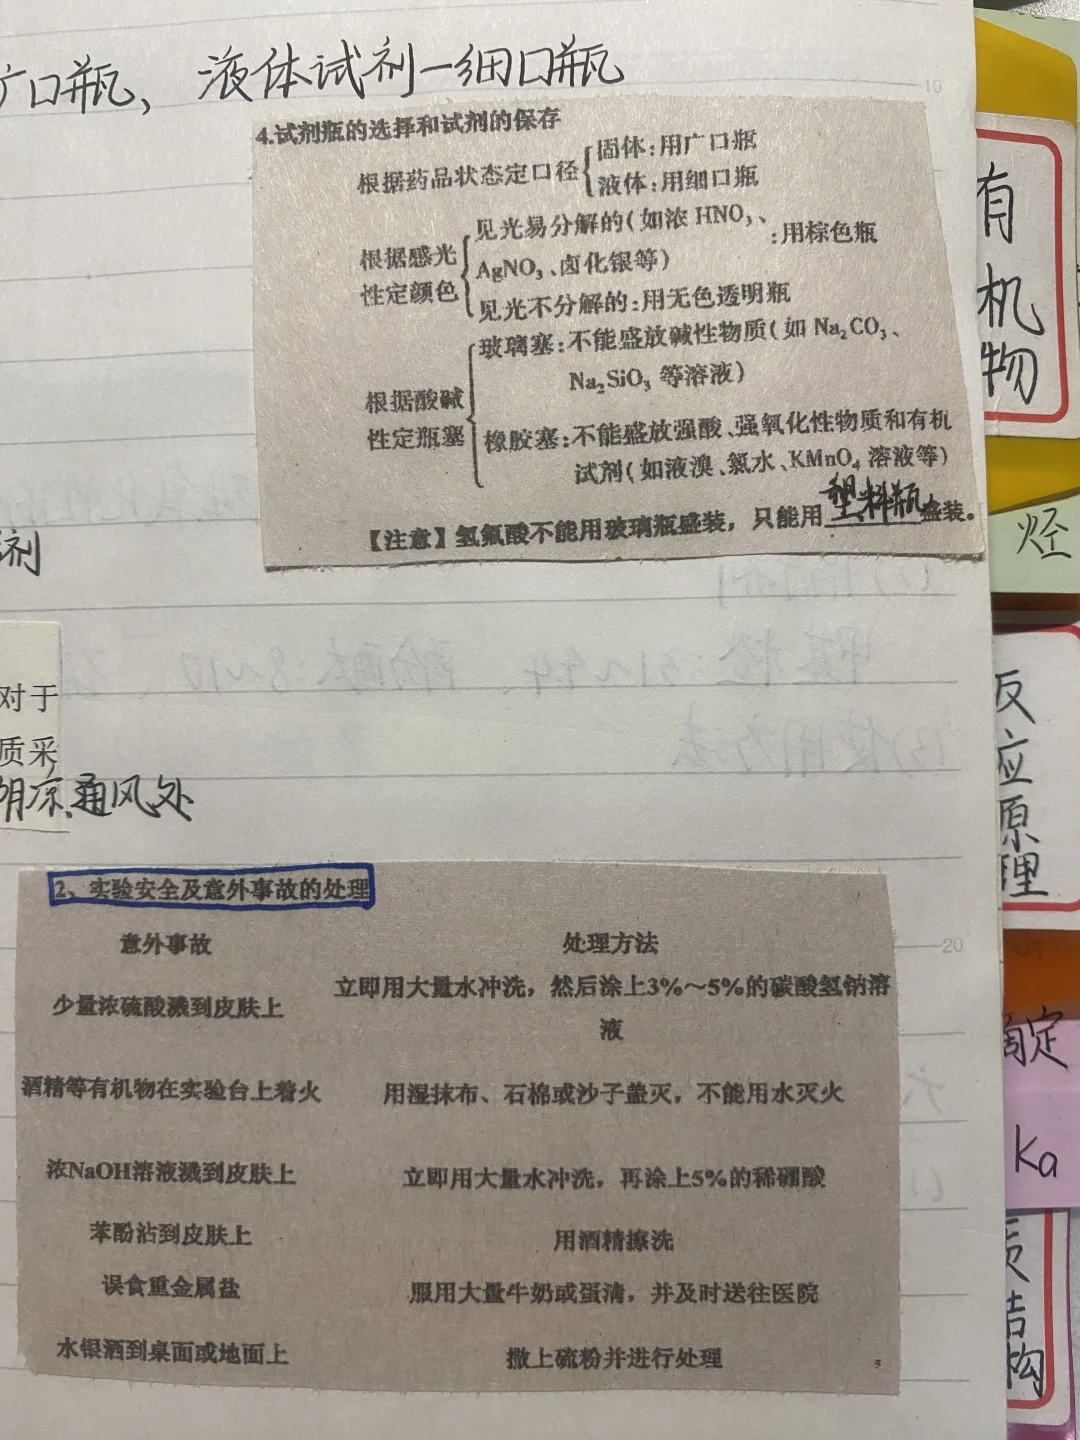 广口瓶、液体试剂—细口瓶
10
4.试剂瓶的选择和试剂的保存
根据药品状态定口径
固体:用广口瓶
液体:用细口瓶
根据感光
性定颜色
见光易分解的(如浓 HNO₃、
AgNO₃、卤化银等)
:用棕色瓶
见光不分解的:用无色透明瓶
根据酸碱
性定瓶塞
玻璃塞:不能盛放碱性物质(如 Na₂CO₃、
Na₂SiO₃ 等溶液)
橡胶塞:不能盛放强酸、强氧化性物质和有机
试剂(如液溴、氯水、KMnO₄ 溶液等)
【注意】氢氟酸不能用玻璃瓶盛装，只能用塑料瓶盛装。
剂
对于
质采
阴凉、通风处
2、实验安全及意外事故的处理
意外事故 处理方法
少量浓硫酸溅到皮肤上 立即用大量水冲洗，然后涂上3%～5%的碳酸氢钠溶
液
酒精等有机物在实验台上着火 用湿抹布、石棉或沙子盖灭，不能用水灭火
浓NaOH溶液溅到皮肤上 立即用大量水冲洗，再涂上5%的稀硼酸
苯酚沾到皮肤上 用酒精擦洗
误食重金属盐 服用大量牛奶或蛋清，并及时送往医院
水银洒到桌面或地面上 撒上硫粉并进行处理
20
有
机
物
烃
反
应
原
理
确定
Ka
质
结
构